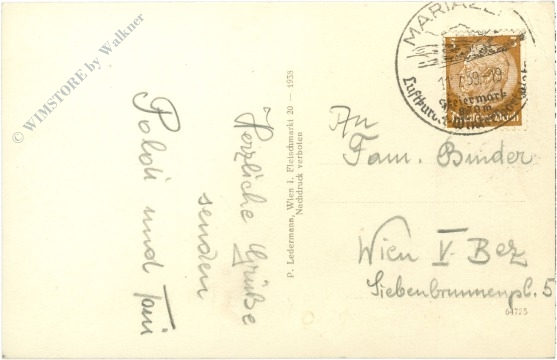 © WIMSTORE by Walkner
Herzliche Grüße
senden
Poldi und Toni
P. Ledermann, Wien I. Fleischmarkt 20 — 1938
Nachdruck verboten
MARIAZELL
Steiermark
3 3
Deutsches Reich
An
Fam. Binder
Wien V. Bez
Siebenbrunnenpl. 5
64725